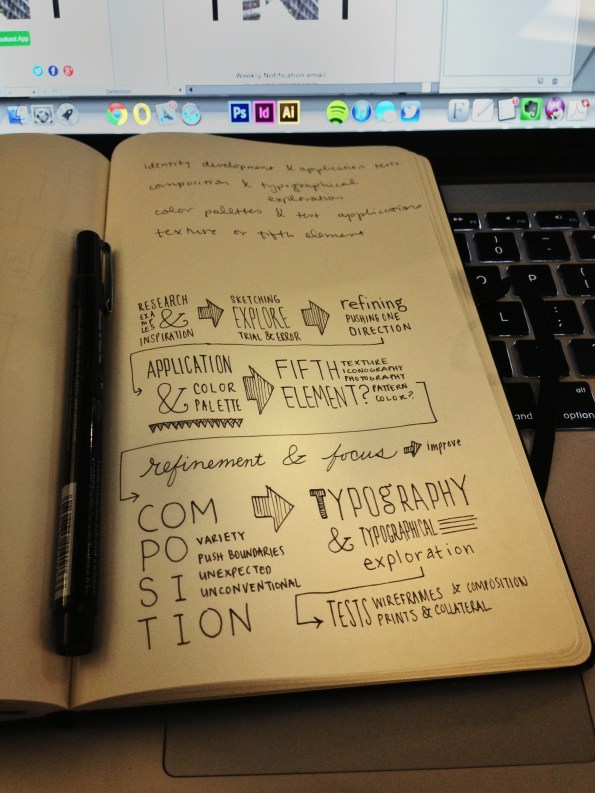 Weekly Notification email
Selection
Ps Id Ai
identity development & application tests
composition & typographical
exploration
color palettes & test applications
texture or fifth element
RESEARCH
EXAMPLES
&
INSPIRATION
SKETCHING
EXPLORE
TRIAL & ERROR
refining
PUSHING ONE
DIRECTION
APPLICATION
& COLOR
PALETTE
FIFTH
ELEMENT?
TEXTURE
ICONOGRAPHY
PHOTOGRAPHY
PATTERN
COLOR?
refinement & focus improve
COM
PO
SI
TION
VARIETY
PUSH BOUNDARIES
UNEXPECTED
UNCONVENTIONAL
TYPOGRAPHY
& TYPOGRAPHICAL
exploration
TESTS WIREFRAMES & COMPOSITION
PRINTS & COLLATERAL
alt
option